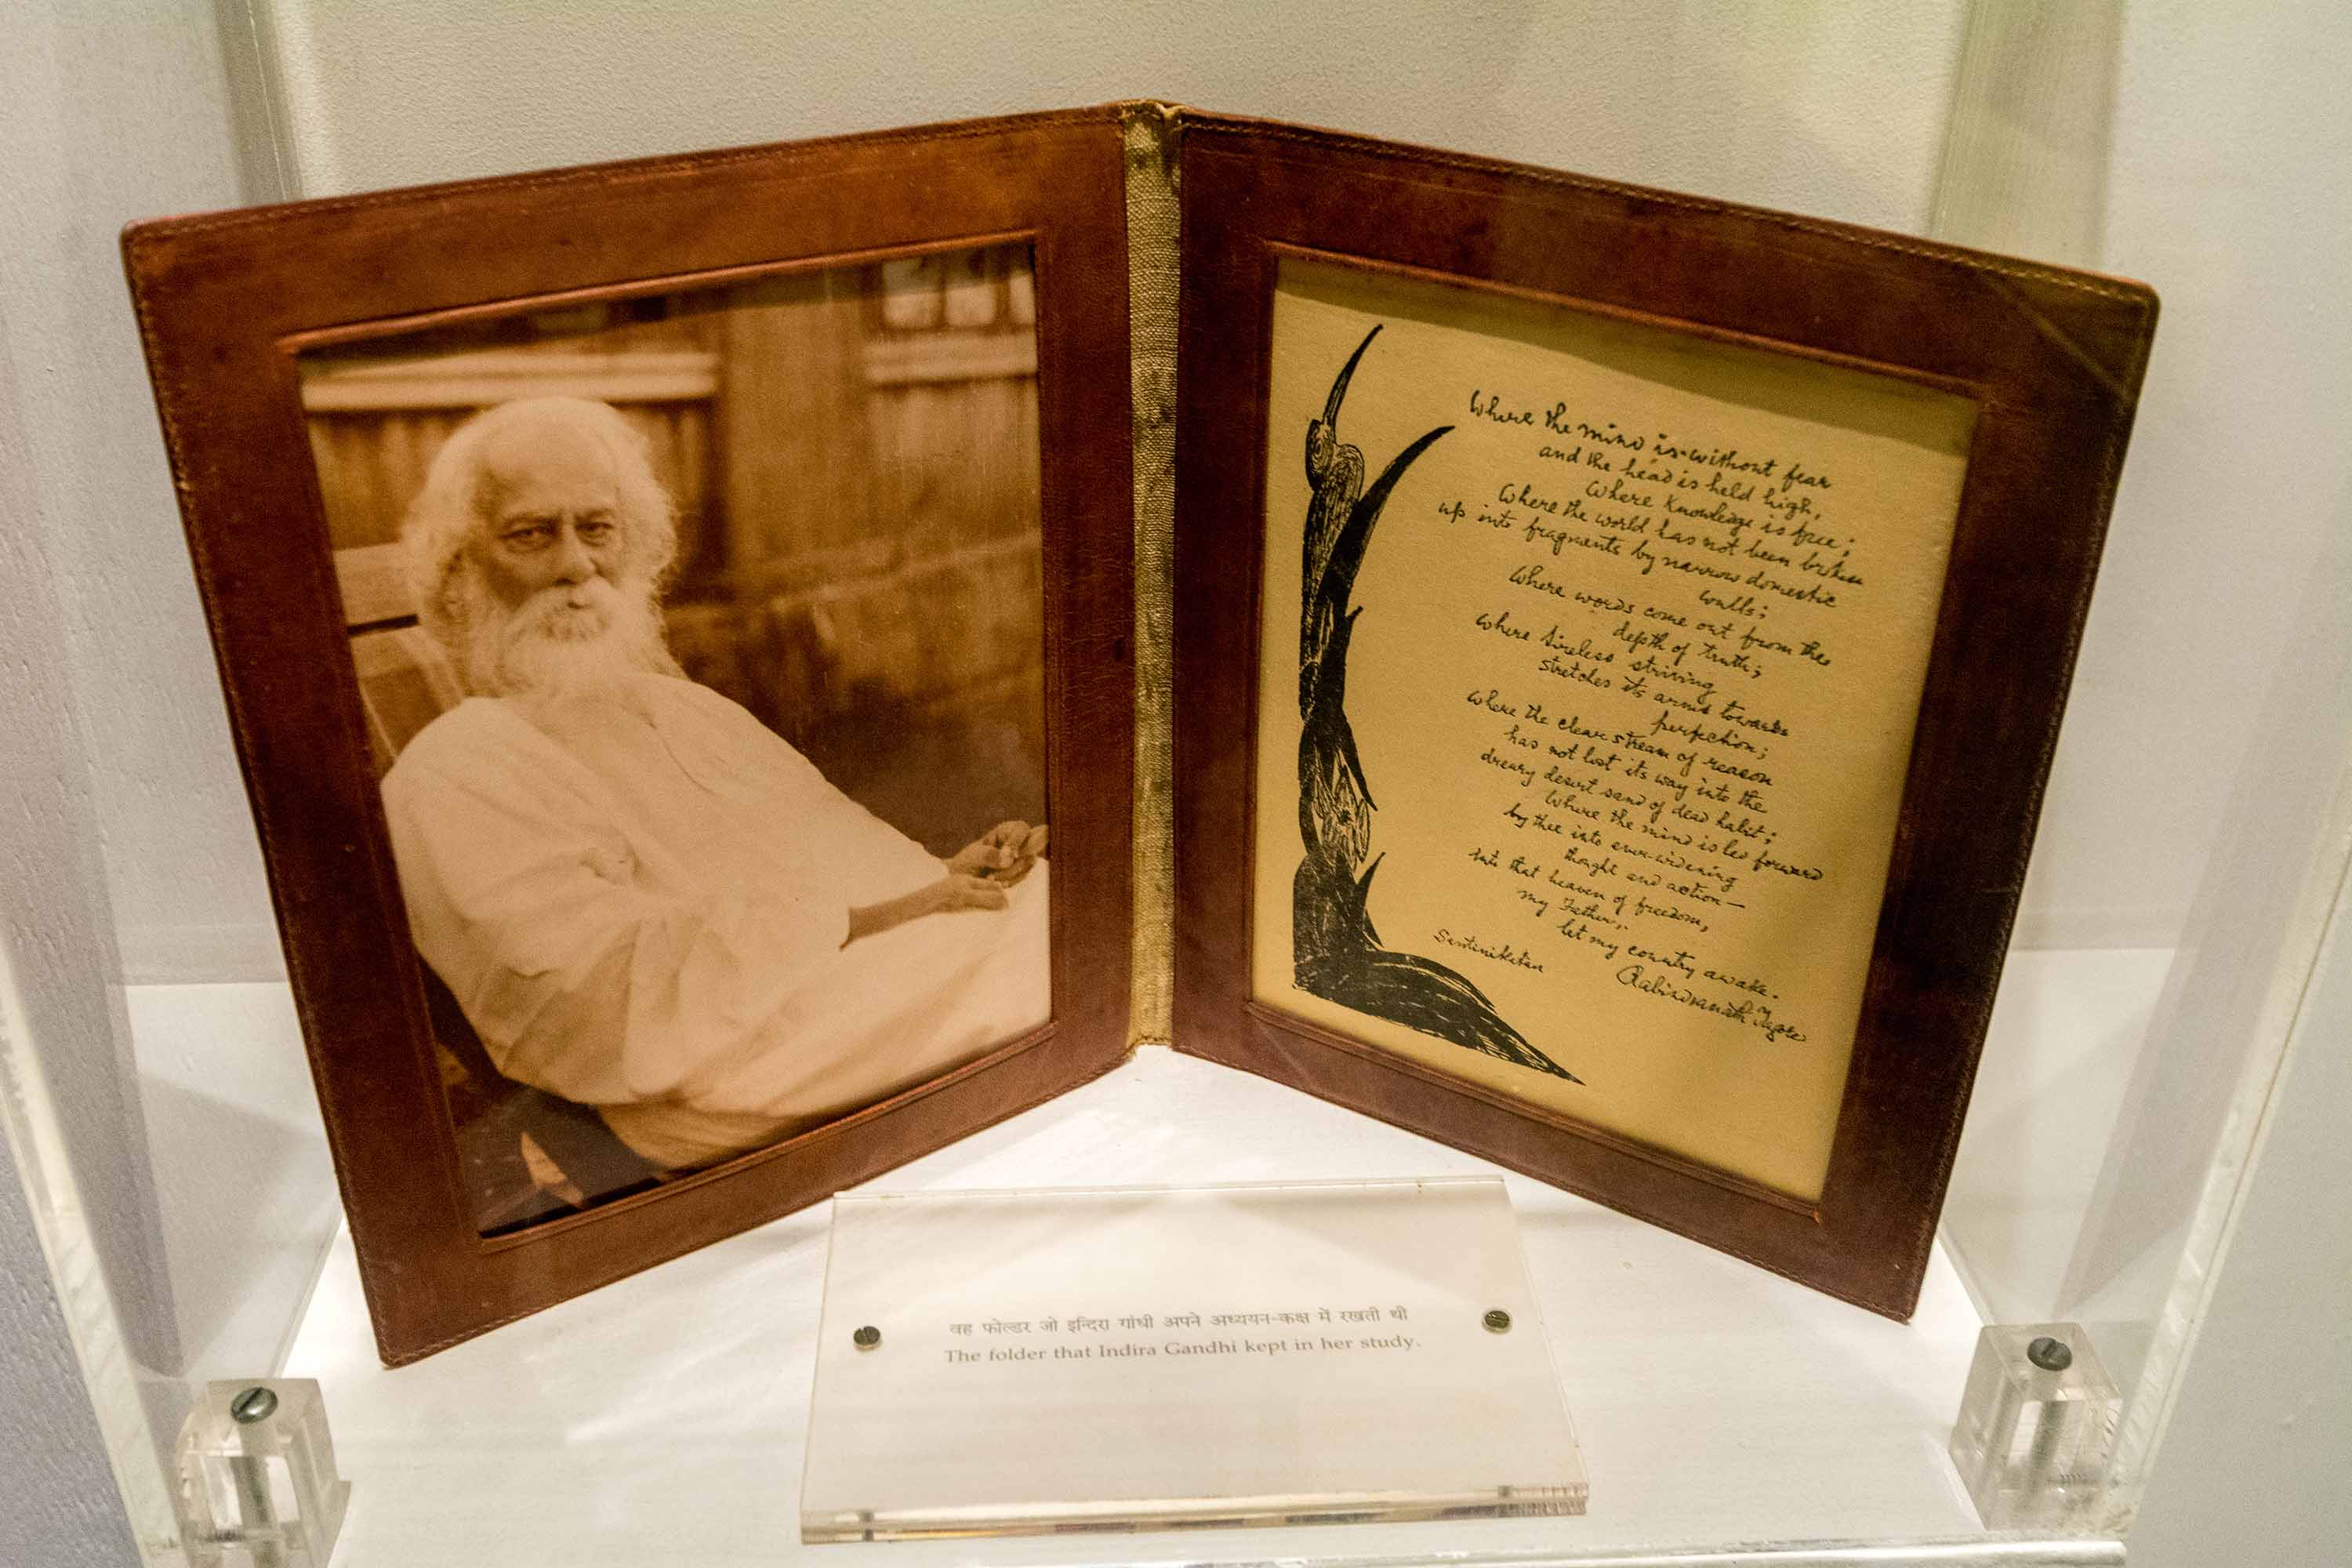 Where the mind is without fear
and the head is held high,
Where knowledge is free;
Where the world has not been broken
up into fragments by narrow domestic
walls;
Where words come out from the
depth of truth;
Where tireless striving
stretches its arms towards
perfection;
Where the clear stream of reason
has not lost its way into the
dreary desert sand of dead habit;
Where the mind is led forward
by thee into ever-widening
thought and action—
Into that heaven of freedom,
my Father,
let my country awake.
Santiniketan
Rabindranath Tagore
वह फोल्डर जो इन्दिरा गांधी अपने अध्ययन-कक्ष में रखती थी
The folder that Indira Gandhi kept in her study.